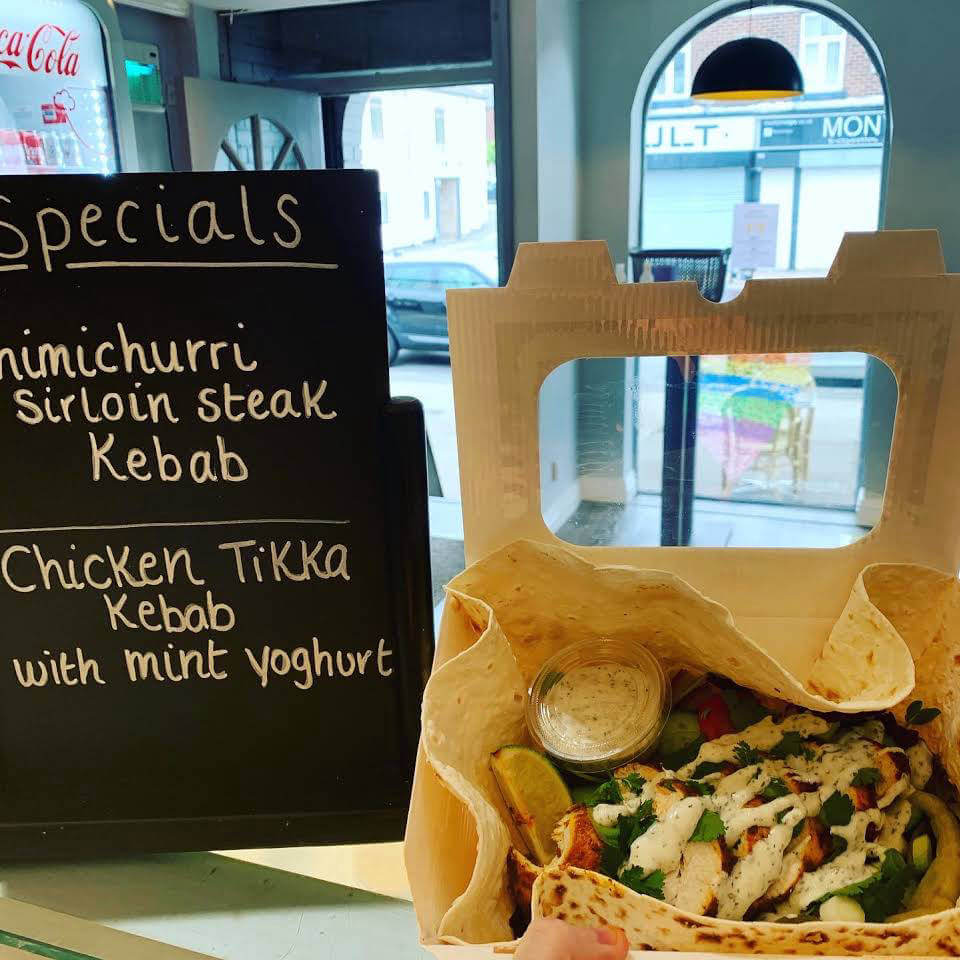 ca-Cola
Specials
himichurri
sirloin steak
Kebab
Chicken Tikka
Kebab
with mint yoghurt
ULT
MON